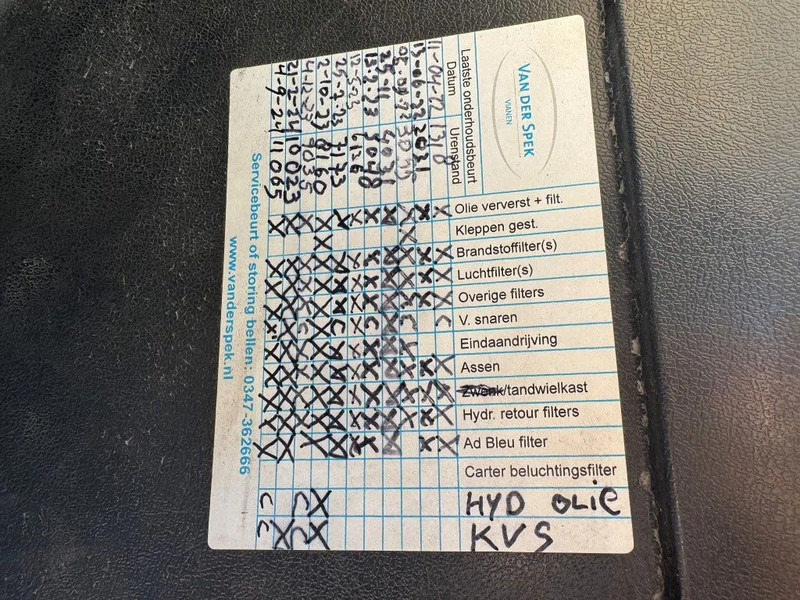 VAN DER SPEK
VIANEN
Laatste onderhoudsbeurt
Datum
Urenstand
11-04-22 1318
13-06-22 2021
25-11 4031
13-2-23 5048
12-5-23 6126
25-7-23 7173
2-10-23 8160
4-12-23 9035
21-2-24 10023
4-9-24 11065
Olie ververst + filt.
Kleppen gest.
Brandstoffilter(s)
Luchtfilter(s)
Overige filters
V. snaren
Eindaandrijving
Assen
Zwenk/tandwielkast
Hydr. retour filters
Ad Bleu filter
Carter beluchtingsfilter
HYD OLIE
KVS
Servicebeurt of storing bellen: 0347-362666
www.vanderspek.nl